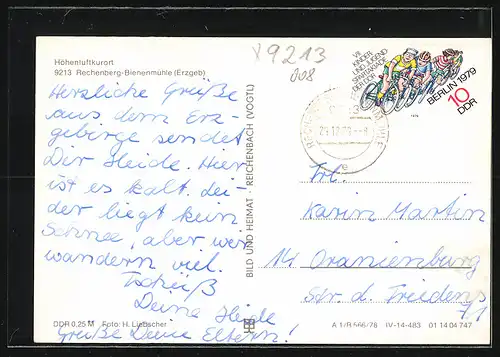 X9213
008
Höhenluftkurort
9213 Rechenberg-Bienenmühle (Erzgeb)
Herzliche Grüße
aus dem Erz-
gebirge sendet
Dir Heide. Hier
ist es kalt. Lei-
der liegt kein
Schnee, aber wir
wandern viel.
Tschüß
Deine Heide
Grüße Deine Eltern!
DDR 0,25 M Foto: H. Liebscher
BILD UND HEIMAT · REICHENBACH (VOGTL)
VII.
KINDER-
UND JUGEND-
SPARTAKIADE
DER DDR
BERLIN 1979
10
DDR
1979
Frl.
Karin Martin
14. Oranienburg
Str. d. Friedens
71
A 1/B 566/78 IV-14-483 01 14 04 747